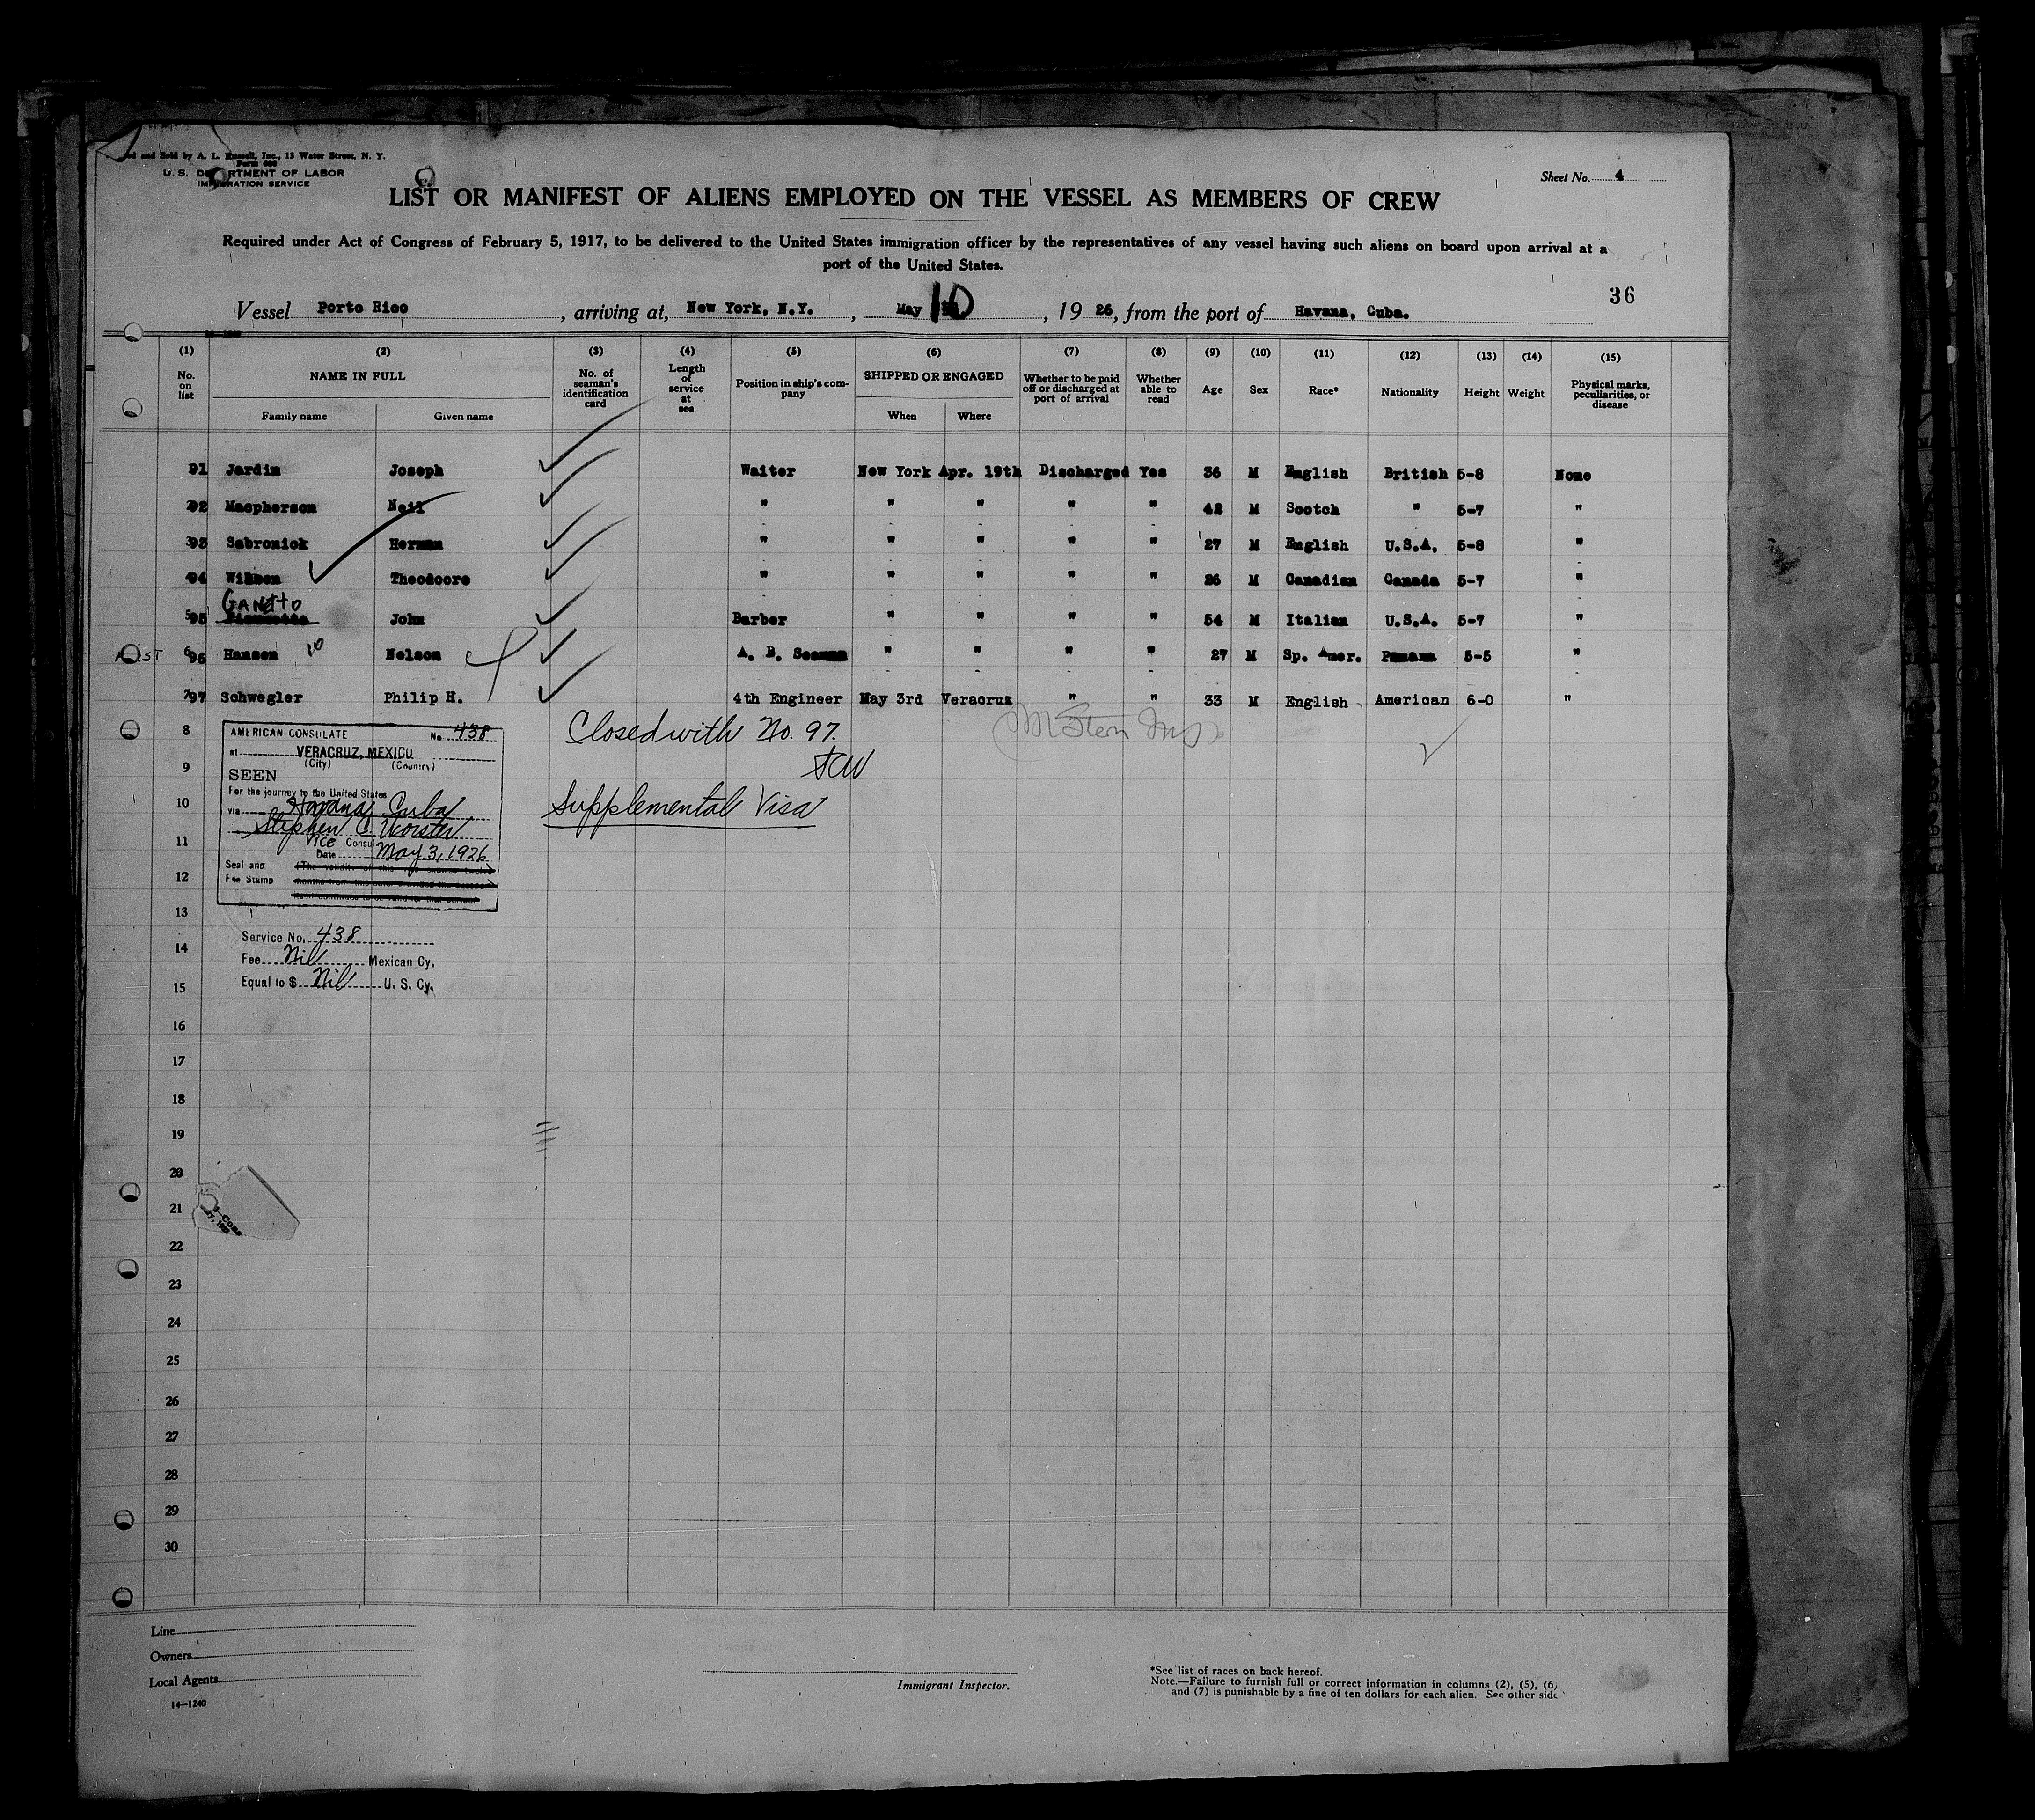 and Sold by A. L. Russell, Inc., 13 Water Street, N. Y.
Form 686
U. S. DEPARTMENT OF LABOR
IMMIGRATION SERVICE
Sheet No. 4
LIST OR MANIFEST OF ALIENS EMPLOYED ON THE VESSEL AS MEMBERS OF CREW
Required under Act of Congress of February 5, 1917, to be delivered to the United States immigration officer by the representatives of any vessel having such aliens on board upon arrival at a
port of the United States.
36
Vessel Porto Rico, arriving at, New York, N.Y., May 10, 1926, from the port of Havana, Cuba.
(1) (2) (3) (4) (5) (6) (7) (8) (9) (10) (11) (12) (13) (14) (15)
No. on list NAME IN FULL No. of seaman's identification card Length of service at sea Position in ship's company SHIPPED OR ENGAGED Whether to be paid off or discharged at port of arrival Whether able to read Age Sex Race* Nationality Height Weight Physical marks, peculiarities, or disease
Family name Given name When Where
91 Jardin Joseph Waiter New York Apr. 19th Discharged Yes 36 M English British 5-8 None
92 Macpherson Neil " " " " " 42 M Scotch " 5-7 "
93 Sabronick Herman " " " " " 27 M English U.S.A. 5-8 "
94 Wilson Theodoore " " " " " 26 M Canadian Canada 5-7 "
Ganetto
95 John Barber " " " " 54 M Italian U.S.A. 5-7 "
96 Hansen 10 Nelson A. B. Seaman " " " " 27 M Sp. Amer. Panama 5-5 "
97 Schwegler Philip H. 4th Engineer May 3rd Veracruz " " 33 M English American 6-0 "
8
AMERICAN CONSULATE No 438
at VERACRUZ, MEXICO
(City) (Country)
SEEN
For the journey to the United States
via Havana, Cuba
Stephen C. Worster
Vice Consul
Date May 3, 1926
Seal and
Fee Stamp
Closed with No. 97.
SCW
Supplemental Visa
9
10
11
12
13
Service No. 438
Fee Nil Mexican Cy.
Equal to $ Nil U. S. Cy.
14
15
16
17
18
19
20
21
22
23
24
25
26
27
28
29
30
Line
Owners
Local Agents
14—1240
Immigrant Inspector.
*See list of races on back hereof.
Note.—Failure to furnish full or correct information in columns (2), (5), (6)
and (7) is punishable by a fine of ten dollars for each alien. See other side